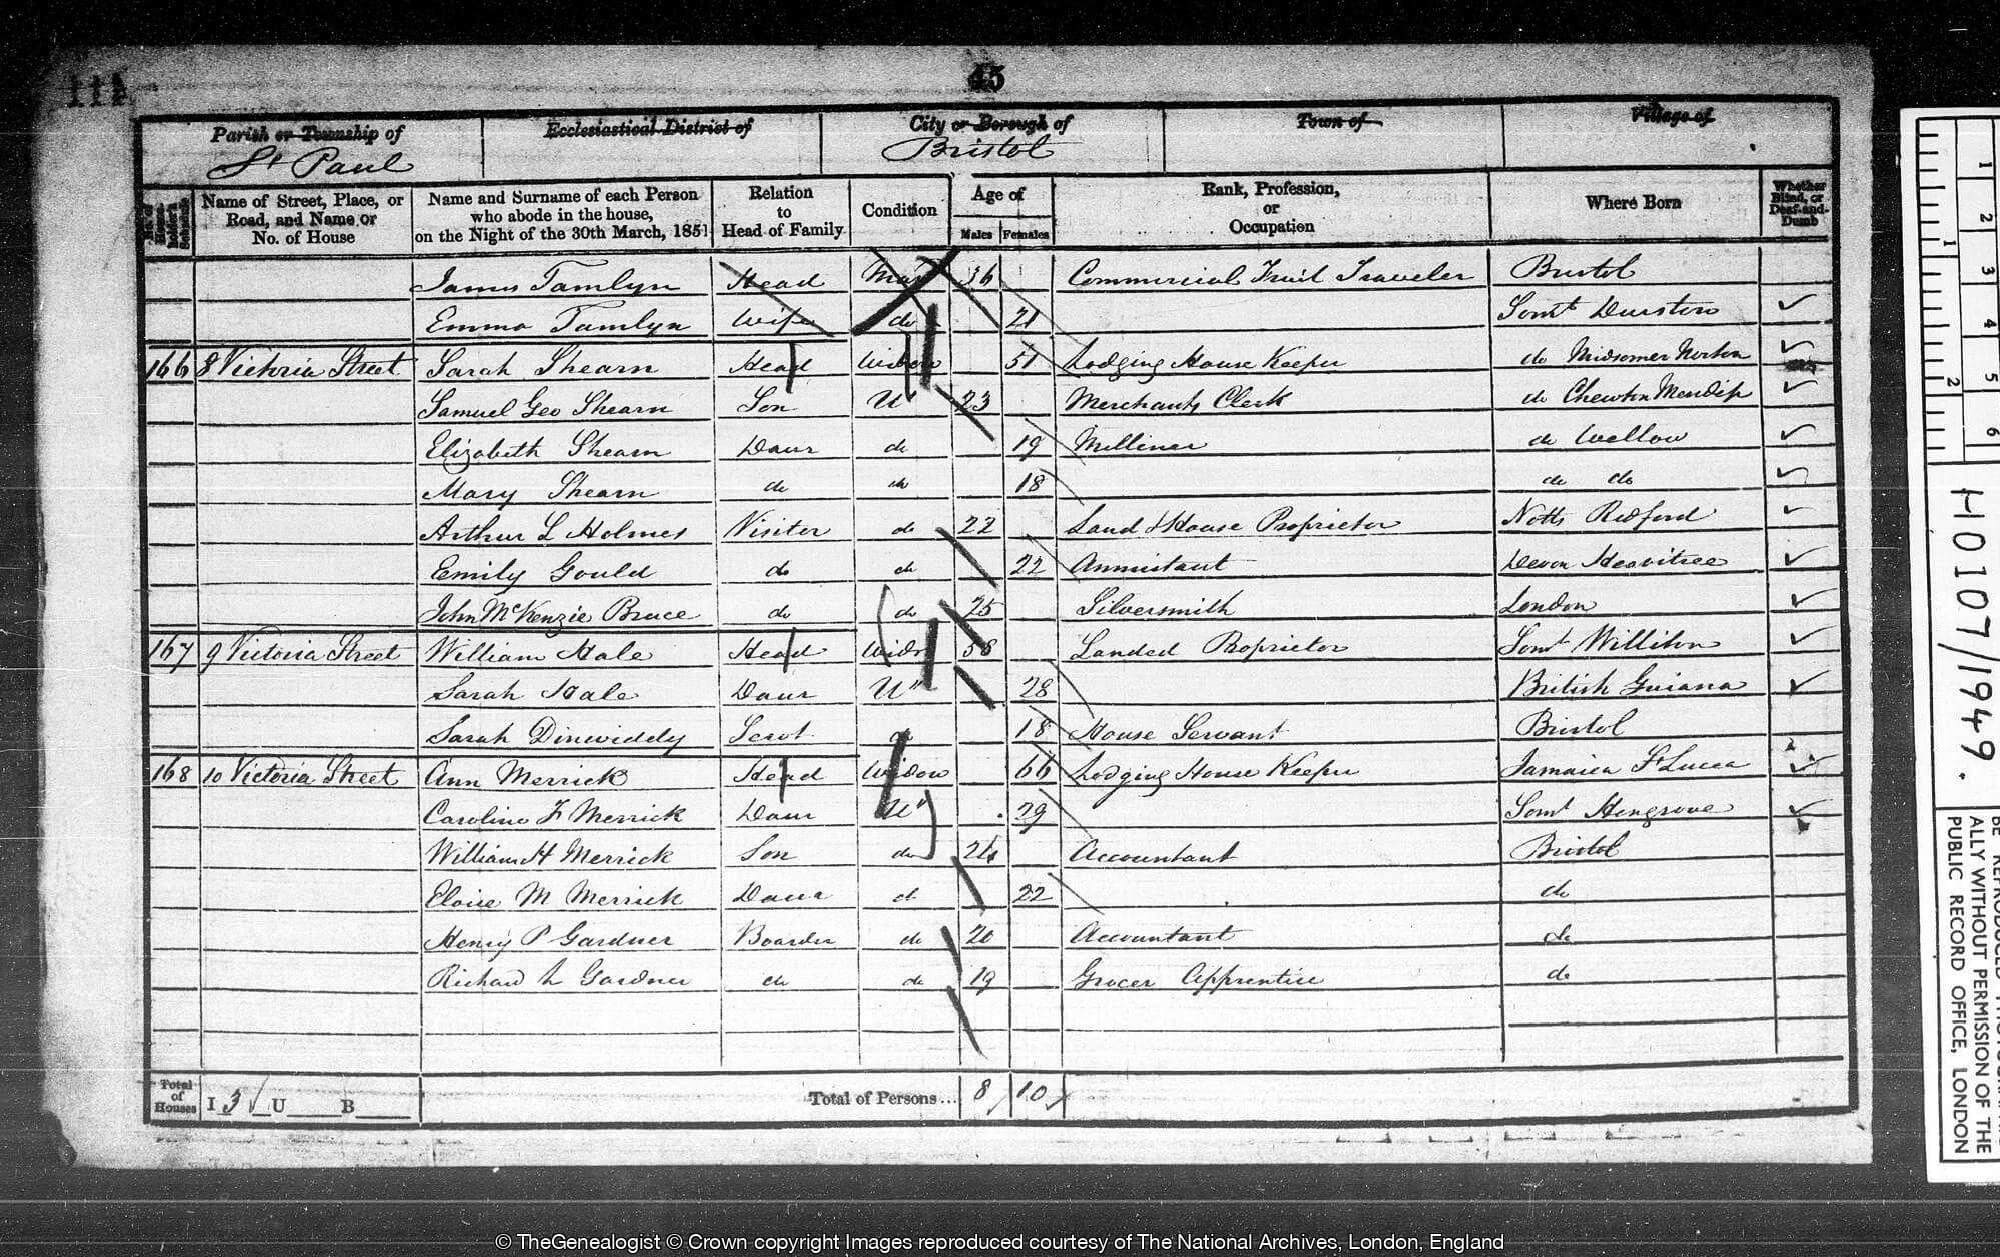 45
Parish or Township of
St Paul
Ecclesiastical District of
City or Borough of
Bristol
Town of
Village of
No. of House-holder's Schedule
Name of Street, Place, or Road, and Name or No. of House
Name and Surname of each Person who abode in the house, on the Night of the 30th March, 1851
Relation to Head of Family
Condition
Age of
Males
Females
Rank, Profession, or Occupation
Where Born
Whether Blind, or Deaf-and-Dumb
James Tamlyn Head Mar 36 Commercial Fruit Traveler Bristol
Emma Tamlyn Wife do 21 Somt Durston
166 8 Victoria Street Sarah Shearn Head Widow 51 Lodging House Keeper do Midsomer Norton
Samuel Geo Shearn Son U 23 Merchants Clerk do Chewton Mendip
Elizabeth Shearn Daur do 19 Milliner do Wellow
Mary Shearn do do 18 do do
Arthur L Holmes Visitor do 22 Land & House Proprietor Notts Redford
Emily Gould do do 22 Annuitant Devon Heavitree
John McKenzie Bruce do do 25 Silversmith London
167 9 Victoria Street William Hale Head Widr 58 Landed Proprietor Somt Williton
Sarah Hale Daur U 28 British Guiana
Sarah Dinwiddy Servt do 18 House Servant Bristol
168 10 Victoria Street Ann Merrick Head Widow 66 Lodging House Keeper Jamaica St Lucea
Caroline F Merrick Daur U 29 Somt Hengrove
William H Merrick Son do 24 Accountant Bristol
Eloise M Merrick Daur do 22 do
Henry P Gardner Boarder do 20 Accountant do
Richard L Gardner do do 19 Grocer Apprentice do
Total of Houses I 3 U B Total of Persons... 8 10
1 2 3 4 5 6
1 2
HO107/1949.
ALLY WITHOUT PERMISSION OF THE
PUBLIC RECORD OFFICE, LONDON
© TheGenealogist © Crown copyright Images reproduced courtesy of The National Archives, London, England